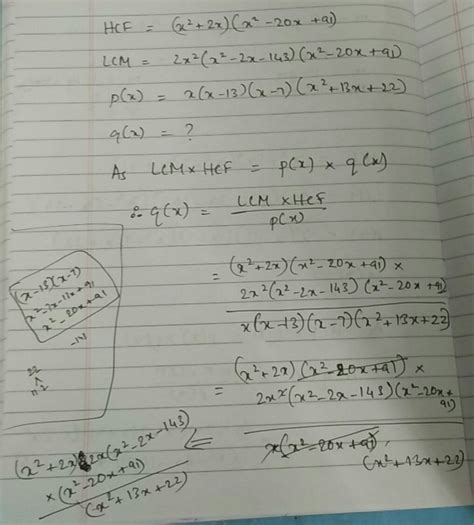 HCF = (x²+2x)(x²-20x+91)
LCM = 2x²(x²-2x-143)(x²-20x+91)
p(x) = x(x-13)(x-7)(x²+13x+22)
q(x) = ?
As LCM×HCF = p(x) × q(x)
∴ q(x) = LCM×HCF
p(x)
= (x²+2x)(x²-20x+91) ×
2x²(x²-2x-143)(x²-20x+91)
x(x-13)(x-7)(x²+13x+22)
(x-13)(x-7)
x²-7x-13x+91
x²-20x+91
-143
22
11 2
= (x²+2x)(x²-20x+91) ×
2x²(x²-2x-143)(x²-20x+
91)
x(x²-20x+91)
(x²+13x+22)
⇐
(x²+2x) 2x(x²-2x-143)
×(x²-20x+91)
(x²+13x+22)